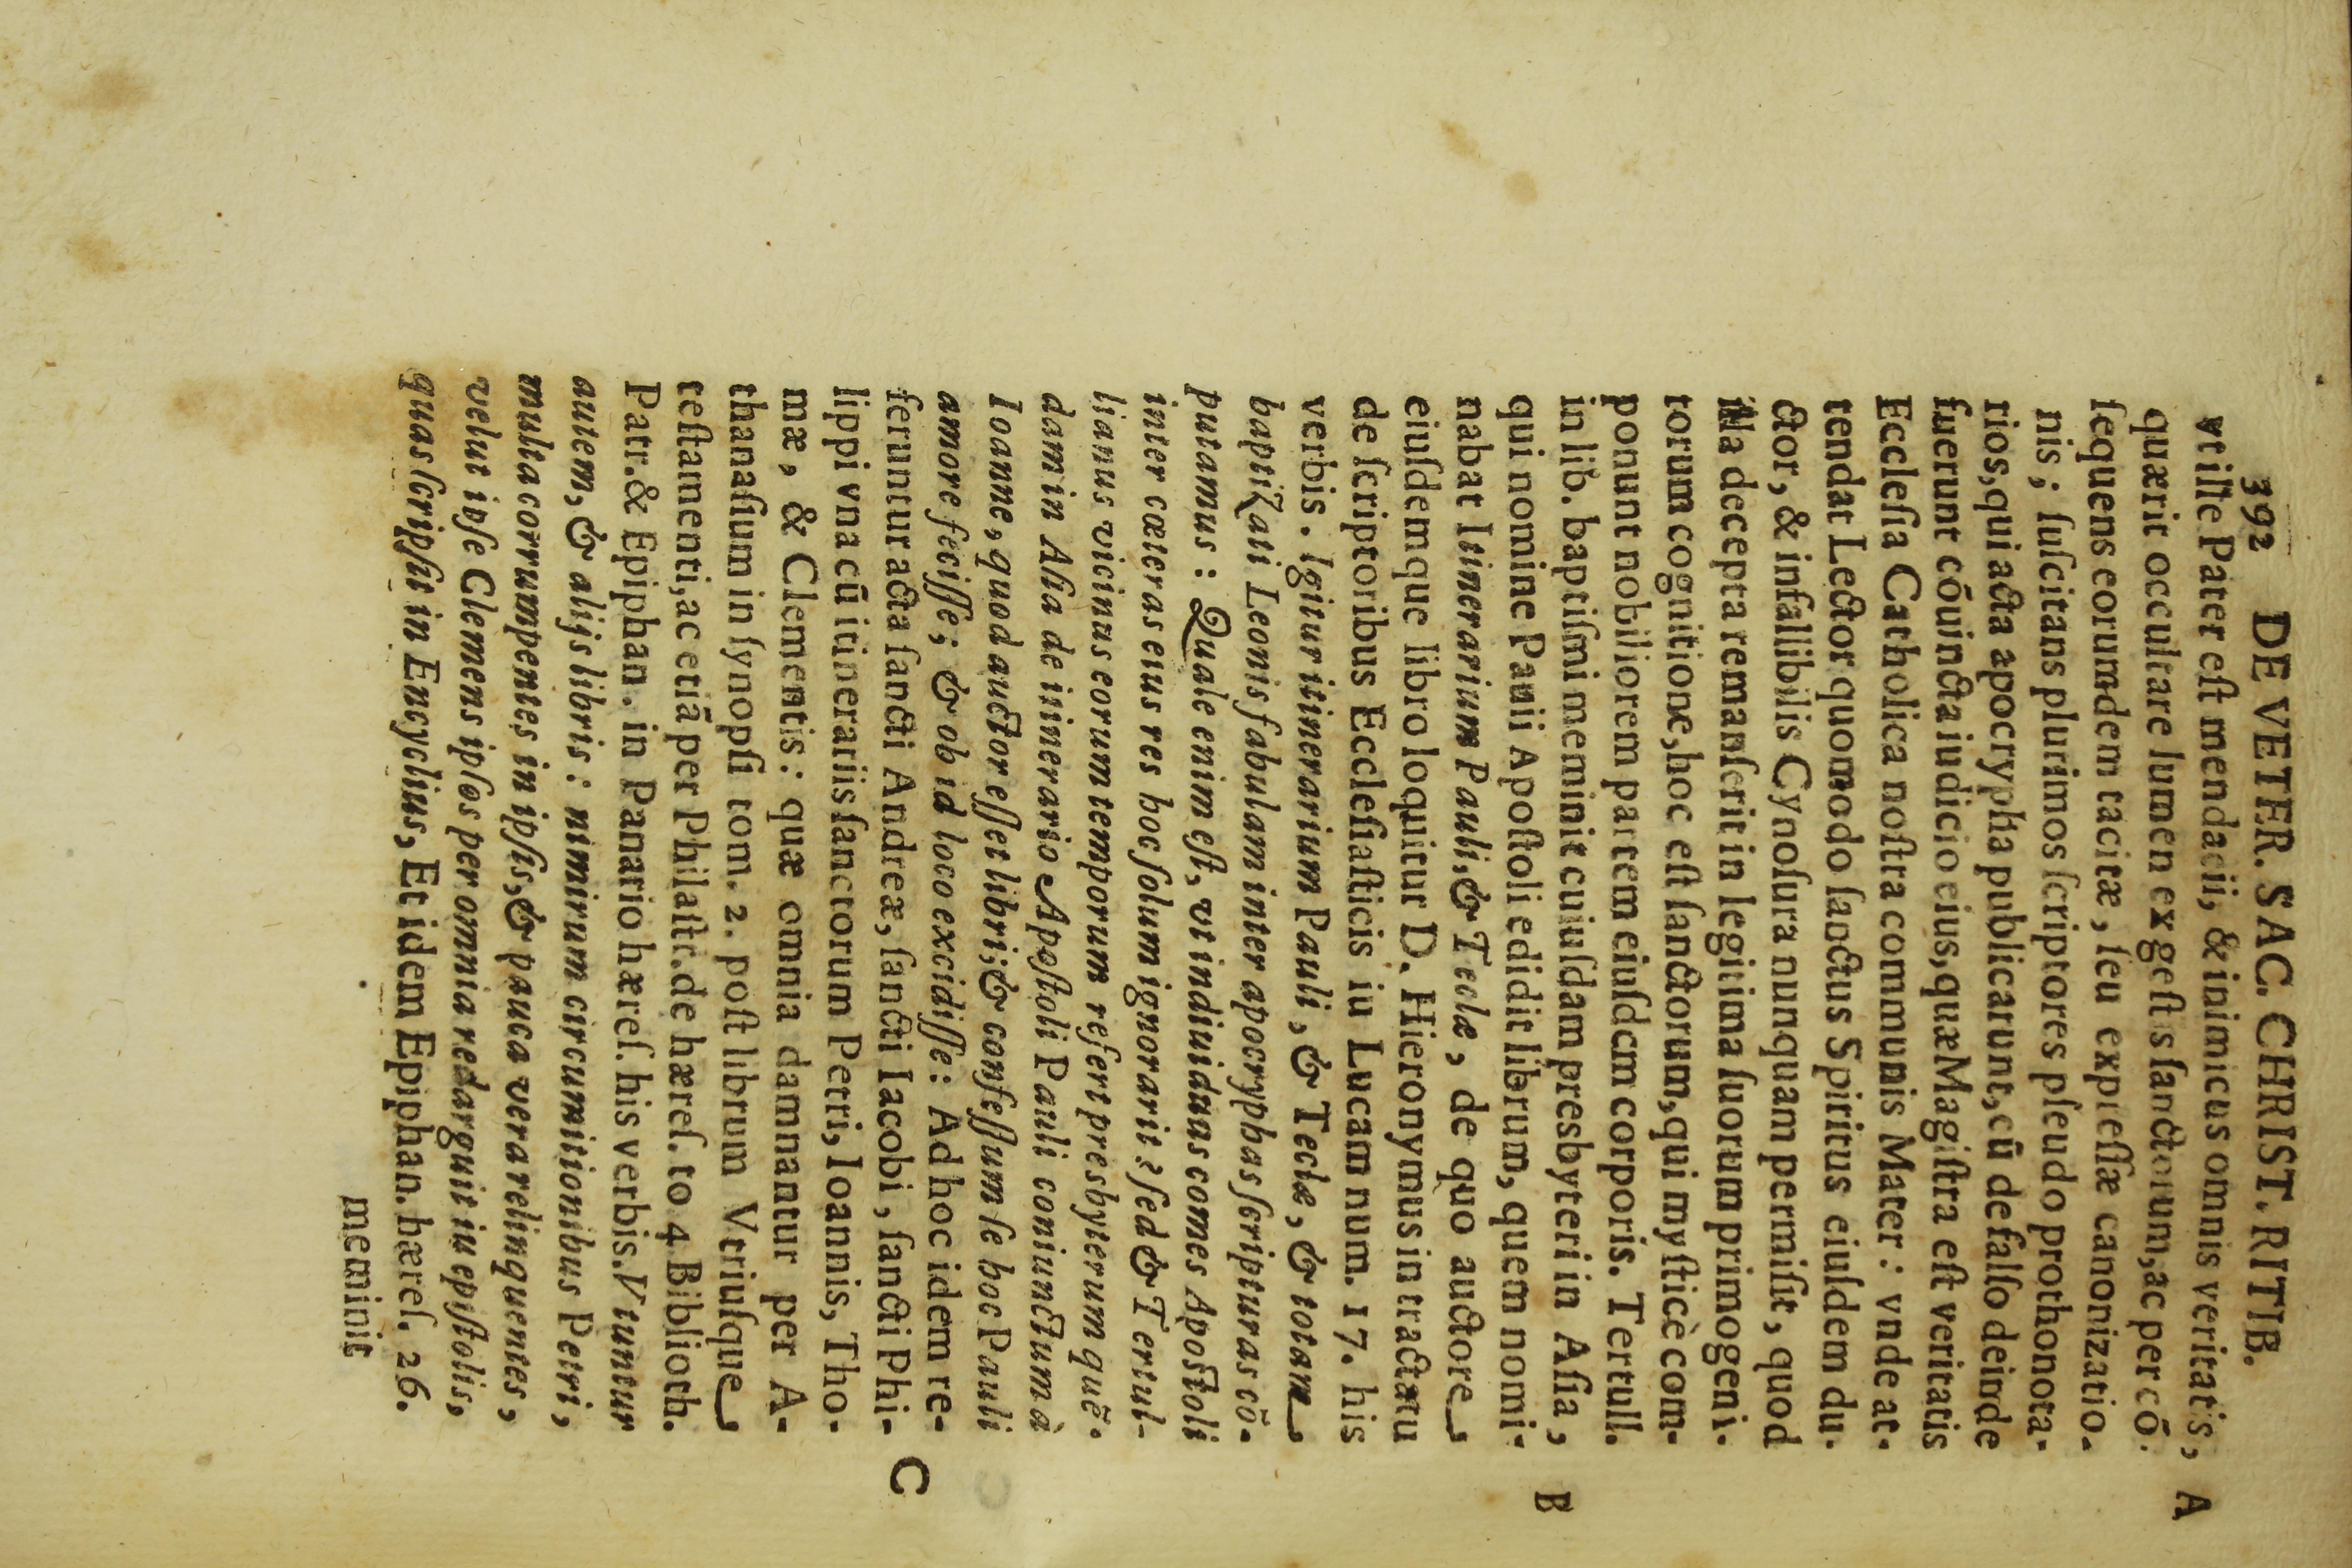 392 DE VETER. SAC. CHRIST. RITIB.
vt iſte Pater eſt mendacii, & inimicus omnis veritatis, A
quærit occultare lumen ex geſtis ſanctorum, ac percō-
ſequens eorumdem tacitæ, ſeu expreſſæ canonizatio-
nis; ſuſcitans plurimos ſcriptores pſeudo prothonota-
rios, qui acta apocrypha publicarunt, cū de falſo deinde
fuerunt cōuincta iudicio eius, quæ Magiſtra eſt veritatis
Eccleſia Catholica noſtra communis Mater: vnde at-
tendat Lector quomodo ſanctus Spiritus eiuſdem du-
ctor, & infallibilis Cynoſura nunquam permiſit, quod
illa decepta remanſerit in legitima ſuorum primogeni-
torum cognitione, hoc eſt ſanctorum, qui myſticè com-
ponunt nobiliorem partem eiuſdem corporis. Tertull.
in lib. baptiſmi meminit cuiuſdam presbyteri in Aſia,
qui nomine Pauli Apoſtoli edidit librum, quem nomi- B
nabat Itinerarium Pauli, & Teclæ, de quo auctore
eiuſdemque libro loquitur D. Hieronymus in tractatu
de ſcriptoribus Eccleſiaſticis iu Lucam num. 17. his
verbis. Igitur itinerarium Pauli, & Teclæ, & totam
baptiẓati Leonis fabulam inter apocryphas ſcripturas cō-
putamus: Quale enim eſt, vt indiuiduus comes Apoſtoli
inter cæteras eius res hoc ſolum ignorarit? ſed & Tertul-
lianus vicinus eorum temporum refert presbyterum quē-
dam in Aſia de itinerario Apoſtoli Pauli coniunctum à
Ioanne, quod auctor eſſet libri; & confeſſum ſe hoc Pauli
amore feciſſe; & ob id loco excidiſſe: Ad hoc idem re-
feruntur acta ſancti Andreæ, ſancti Iacobi, ſancti Phi- C
lippi vna cū itinerariis ſanctorum Petri, Ioannis, Tho-
mæ, & Clementis: quæ omnia damnantur per A-
thanaſium in ſynopſi tom. 2. poſt librum Vtriuſque
teſtamenti, ac etiā per Philaſtr. de hæreſ. to 4. Biblioth.
Patr. & Epiphan. in Panario hæreſ. his verbis. Vtuntur
autem, & alijs libris: nimirum circumitionibus Petri,
multa corrumpentes in ipſis, & pauca vera relinquentes,
velut ipſe Clemens ipſos per omnia redarguit in epiſtolis,
quas ſcripſit in Encyclius, Et idem Epiphan. hæreſ. 26.
meminit